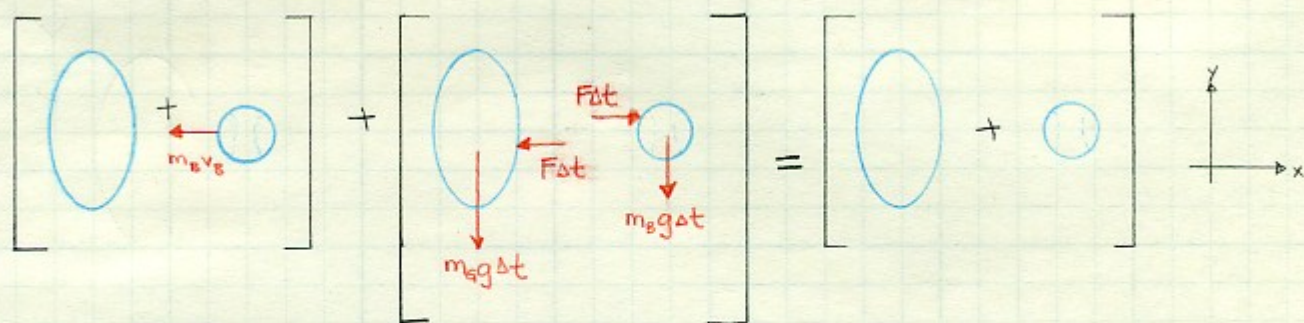 +
m_B v_B
+
FΔt
FΔt
m_G gΔt
m_B gΔt
=
+
y
x